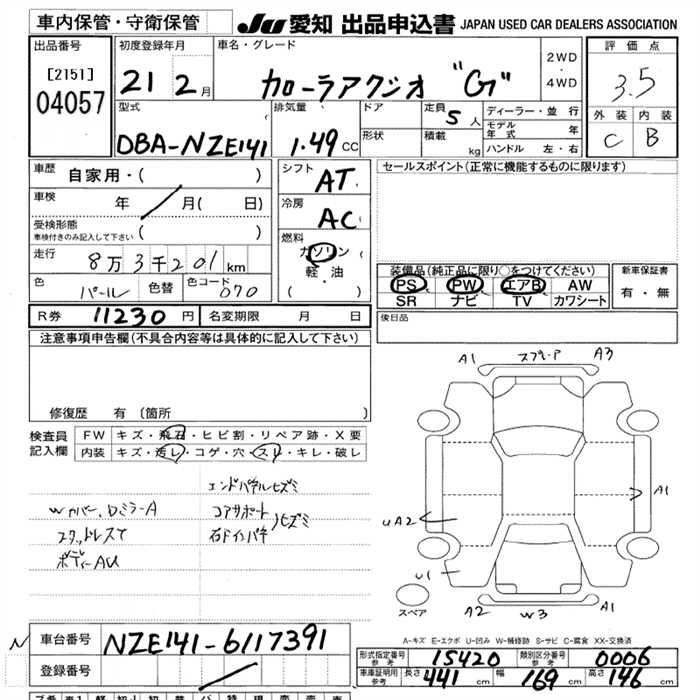 車内保管・守衛保管
JU 愛知 出品申込書 JAPAN USED CAR DEALERS ASSOCIATION
出品番号
[2151]
04057
初度登録年月
21 2 月
車名・グレード
カローラアクシオ "G"
2WD
4WD
評価点
3.5
外装 内装
C B
型式
DBA-NZE141
排気量
1.49 CC
ドア
形状
定員 5 人
積載 kg
ディーラー・並行
モデル年式 年
ハンドル 左・右
車歴 自家用・( )
車検 年 月( 日)
受検形態
車検付きのみ記入して下さい ( )
走行 8万3千201 km
色 パール 色替 色コード 070
シフト AT
冷房 AC
燃料
ガソリン
軽・油
( )
セールスポイント(正常に機能するものに限ります)
装備品(純正品に限り○をつけてください)
PS PW エアB AW
SR ナビ TV カワシート
新車保証書
有・無
R券 11230 円 名変期限 月 日
後日品
注意事項申告欄(不具合内容等は具体的に記入して下さい)
修復歴 有 (箇所
検査員記入欄
FW キズ・飛石・ヒビ割・リペア跡・X要
内装 キズ・汚レ・コゲ・穴・スレ・キレ・破レ
エンドパネルヒズミ
Wカバー、DミラーA
コアサポート ヒズミ
スタッドレスT
右ドインパネ
ボディーAU
A1 スプレーア A3
A1
UA2
U1
スペア
A2 W3 A1
A-キズ E-エクボ U-凹み W-補修跡 S-サビ C-腐食 XX-交換済
N
車台番号 NZE141-6117391
登録番号
形式指定番号 参考 15420 類別区分番号 参考 0006
車庫証明用 参考 長さ 441 cm 幅 169 cm 高さ 146 cm